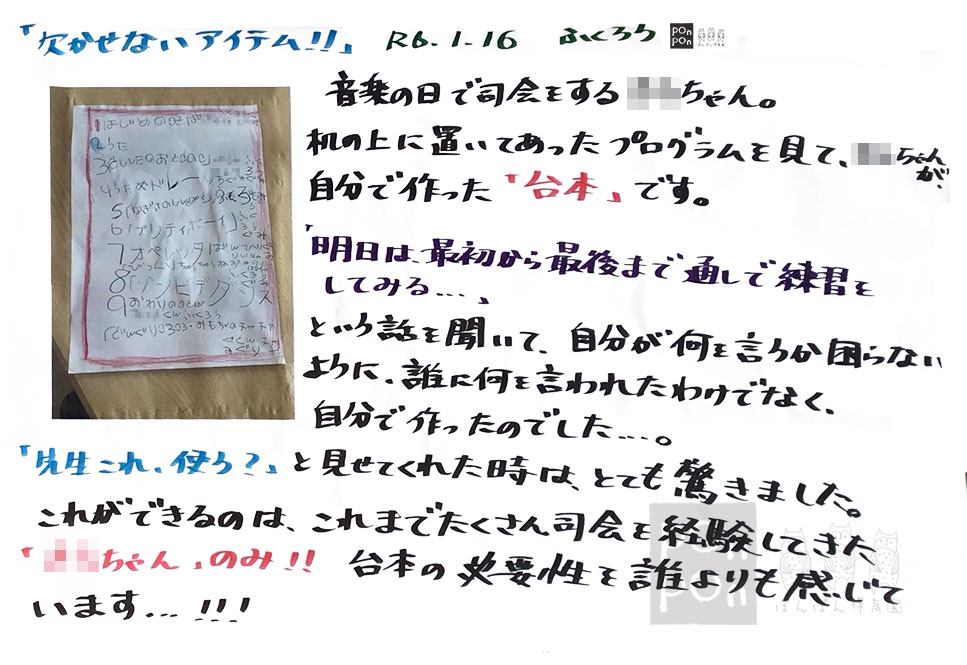 「欠かせないアイテム!!」 R6.1.16 ふくろう PON PON
音楽の日で司会をする ちゃん。
机の上に置いてあったプログラムを見て、 ちゃんが、
自分で作った「台本」です。
「明日は、最初から最後まで通しで練習を
してみる...」
という話を聞いて、自分が何を言うか困らない
ように、誰に何を言われたわけでなく、
自分で作ったのでした...。
「先生これ、使う?」と見せてくれた時は、とても驚きました。
これができるのは、これまでたくさん司会を経験してきた
「 ちゃん」のみ!! 台本の必要性を誰よりも感じて
います...!!!
1はじめのことば
2うた
4うたメドレー
6「プリティボーイ」
7オペレッタ
8「ゾンビデダンス
9おわりのことば
pon
ぽんぽん保育園